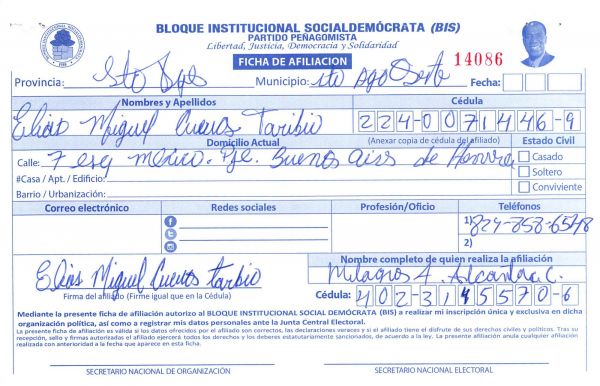 BLOQUE INSTITUCIONAL SOCIALDEMÓCRATA (BIS)
PARTIDO PEÑAGOMISTA
Libertad, Justicia, Democracia y Solidaridad
FICHA DE AFILIACION
14086
Provincia: Sto Dgo Municipio: sto Dgo Oeste Fecha:
Nombres y Apellidos Cédula
Elias Miguel Cuevas Taribio 224-0071446-9
Domicilio Actual (Anexar copia de cédula del afiliado) Estado Civil
Calle: 7 esq mexico. Pje. Buenos Aires de Herrera Casado
#Casa / Apt. / Edificio: Soltero
Barrio / Urbanización: Conviviente
Correo electrónico Redes sociales Profesión/Oficio Teléfonos
1) 829-858-6548
2)
Nombre completo de quien realiza la afiliación
Elias Miguel Cuevas Taribio Milagros A. Alcantara C.
Firma del afiliado (Firme igual que en la Cédula) Cédula: 402-3145570-6
Mediante la presente ficha de afiliación autorizo al BLOQUE INSTITUCIONAL SOCIAL DEMÓCRATA (BIS) a realizar mi inscripción única y exclusiva en dicha
organización política, así como a registrar mis datos personales ante la Junta Central Electoral.
La presente ficha de afiliación es válida si los datos ofrecidos por el afiliado son correctos, las declaraciones veraces y si el afiliado tiene el disfrute de sus derechos civiles y políticos. Tras su
recepción, sello y firmas autorizadas el afiliado ejercerá todos los derechos y los deberes estatutariamente sancionados, de acuerdo a la ley. La presente afiliación anula cualquier afiliación
realizada con anterioridad a la fecha que aparece en esta ficha.
SECRETARIO NACIONAL DE ORGANIZACIÓN SECRETARIO NACIONAL ELECTORAL